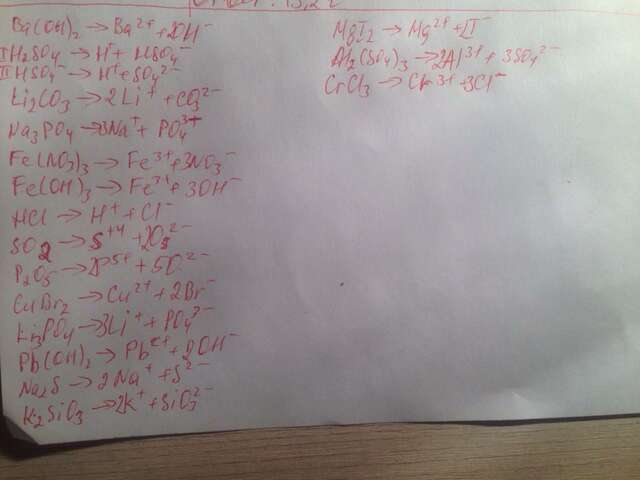 Ba(OH)₂ → Ba²⁺ + 2OH⁻
I H₂SO₄ → H⁺ + HSO₄⁻
II HSO₄⁻ → H⁺ + SO₄²⁻
Li₂CO₃ → 2Li⁺ + CO₃²⁻
Na₃PO₄ → 3Na⁺ + PO₄³⁺
Fe(NO₃)₃ → Fe³⁺ + 3NO₃⁻
Fe(OH)₃ → Fe³⁺ + 3OH⁻
HCl → H⁺ + Cl⁻
SO₂ → S⁺⁴ +
P₂O₅ → 2P⁵⁺ + 5O²⁻
CuBr₂ → Cu²⁺ + 2Br⁻
Li₃PO₄ → 3Li⁺ + PO₄³⁻
Pb(OH)₂ → Pb²⁺ + 2OH⁻
Na₂S → 2Na⁺ + S²⁻
K₂SiO₃ → 2K⁺ + SiO₃²⁻
MgI₂ → Mg²⁺ +
Al₂(SO₄)₃ → 2Al³⁺ + 3SO₄²⁻
CrCl₃ → Cr³⁺ + 3Cl⁻